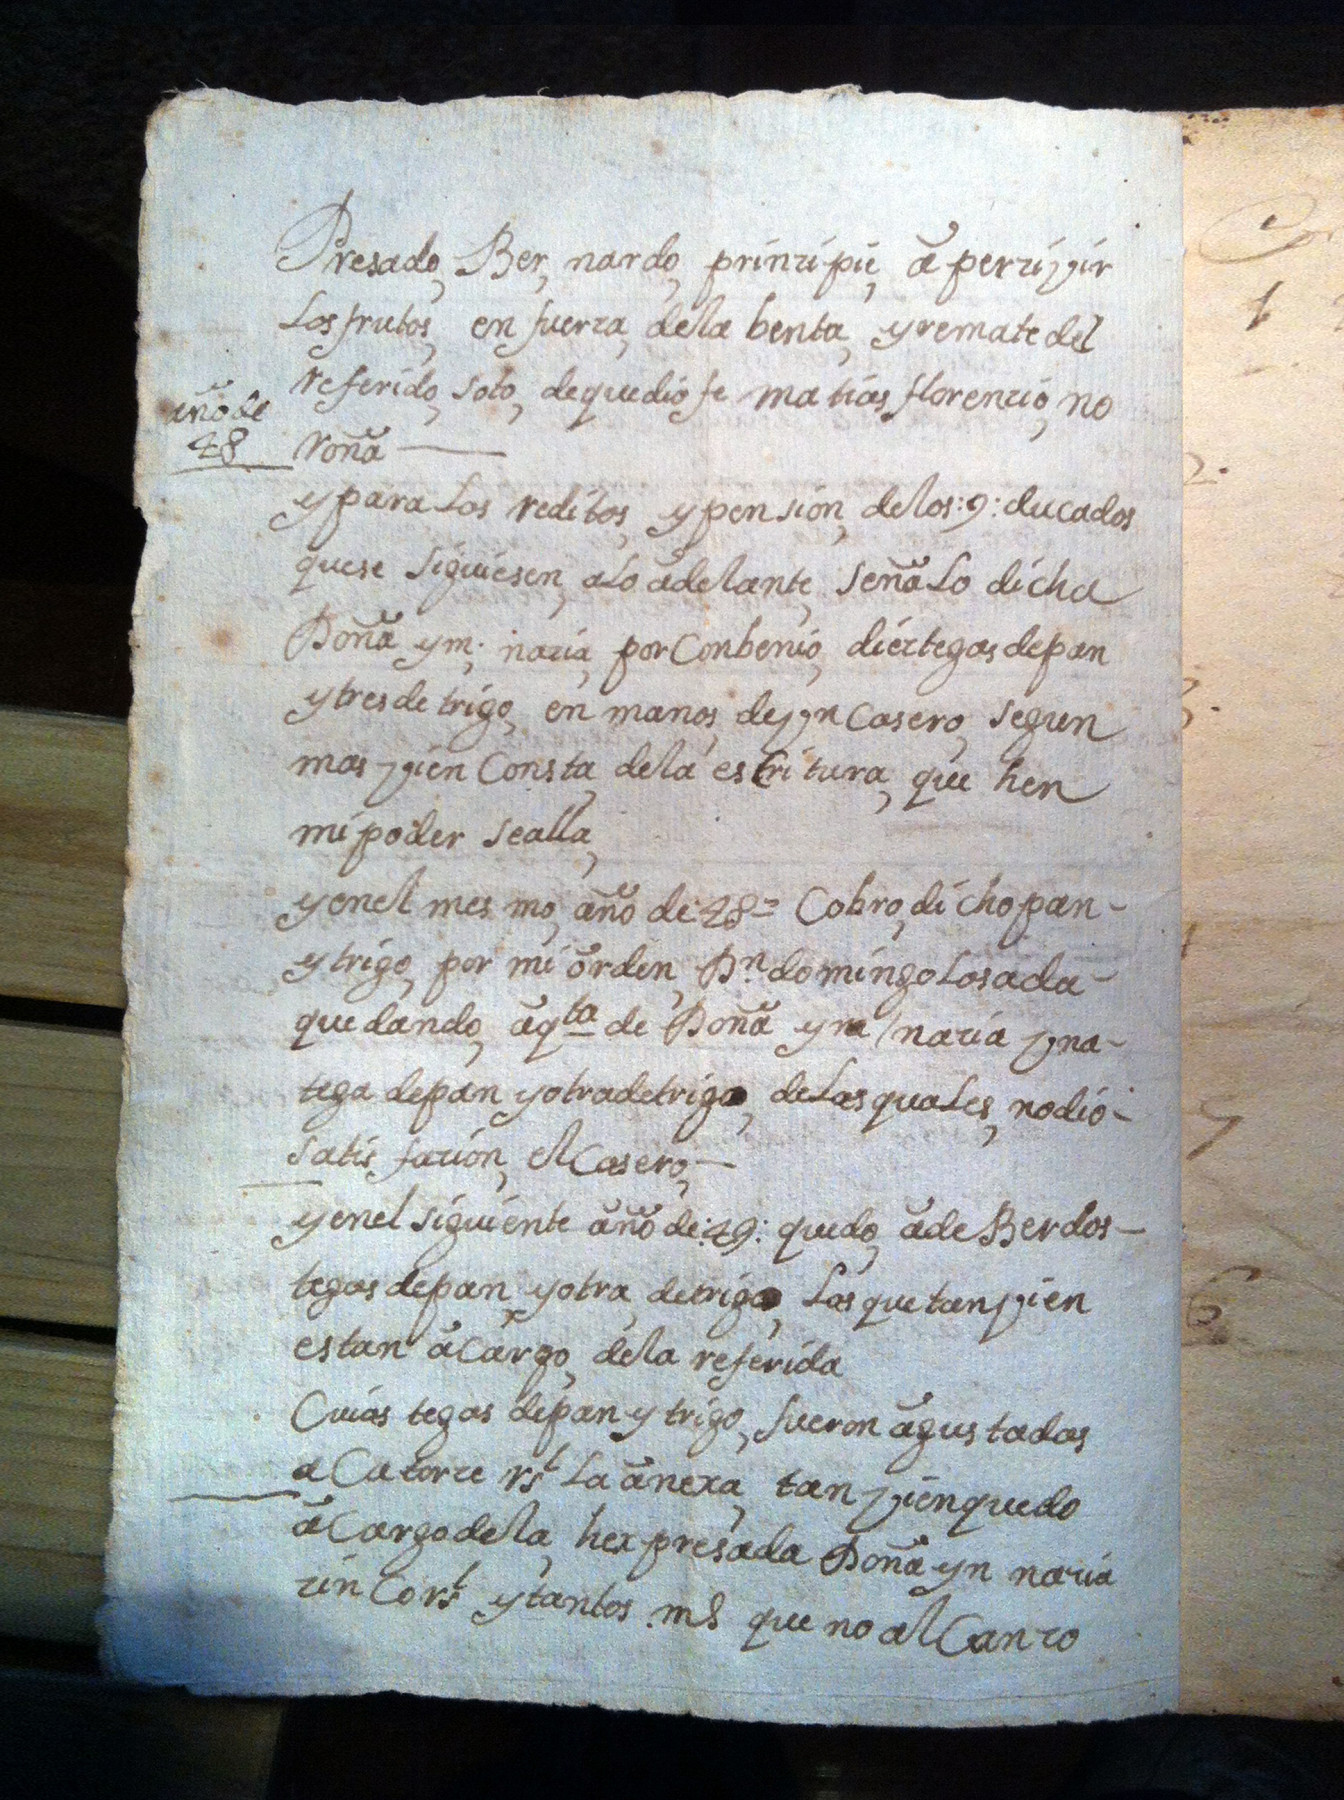 Presado, Ber, nardo, prinzipie, â perzivir
Los frutos, en fuerza, dela benta, y remate del
referido, soto, dequedio fe matias, florenzio, no
año de
48
roña —
y para Los reditos, y pension, delos: 9: ducados
quese siguiesen, a Lo âdelante, señaLo dicha
Doña ym: nazia, por Conbenio, dieztegas depan
y tres de trigo, en manos, de vn Casero, segun
mas vien Consta, dela escritura, que hen
mi poder sealla,
y enel mes mo, año de: 48 = Cobro, di cho pan -
y trigo, por mi ôrden, Dn. domingo Losada -
quedando, âqta de Doña ym/nazia vna -
tega depan y otra detrigo, deLas quaLes, nodio -
satis fazion, el Casero, —
y enel siguiente año de: 49: quedo, âde Ber dos -
tegas depan, y otra, detrigo, Las que tanvien
estan âCargo, dela referida
Cuias tegas depan y trigo, fueron âgustadas
a Catorze rs. La ânexa, tan vien quedo
âCargo dela, hexpresada Doña yn nazia
zinCo rs. y tantos ms que no alCanzo
1
2.
3.
6